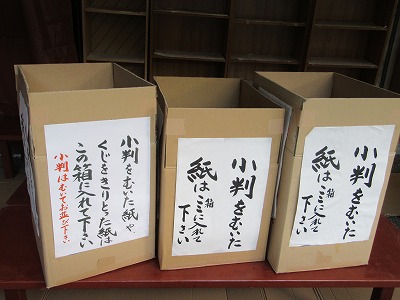 小判をむいた紙や、
くじをきりとった紙は
この箱に入れて下さい
小判はむいてお並び下さい
小判をむいた
箱
紙はここに入れて
下さい
小判をむいた
箱
紙はここに入れて
下さい